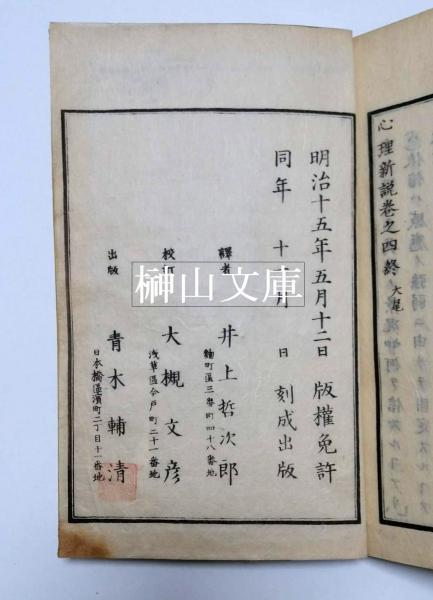 心理新説巻之四終 大尾
明治十五年五月十二日 版權免許
同年 十 月 日 刻成出版
譯者 井上哲次郎
麹町區三番町四十八番地
校訂 大槻文彦
浅草區今戸町二十一番地
出版 青木輔清
日本橋區濱町二丁目十一番地
榊山文庫